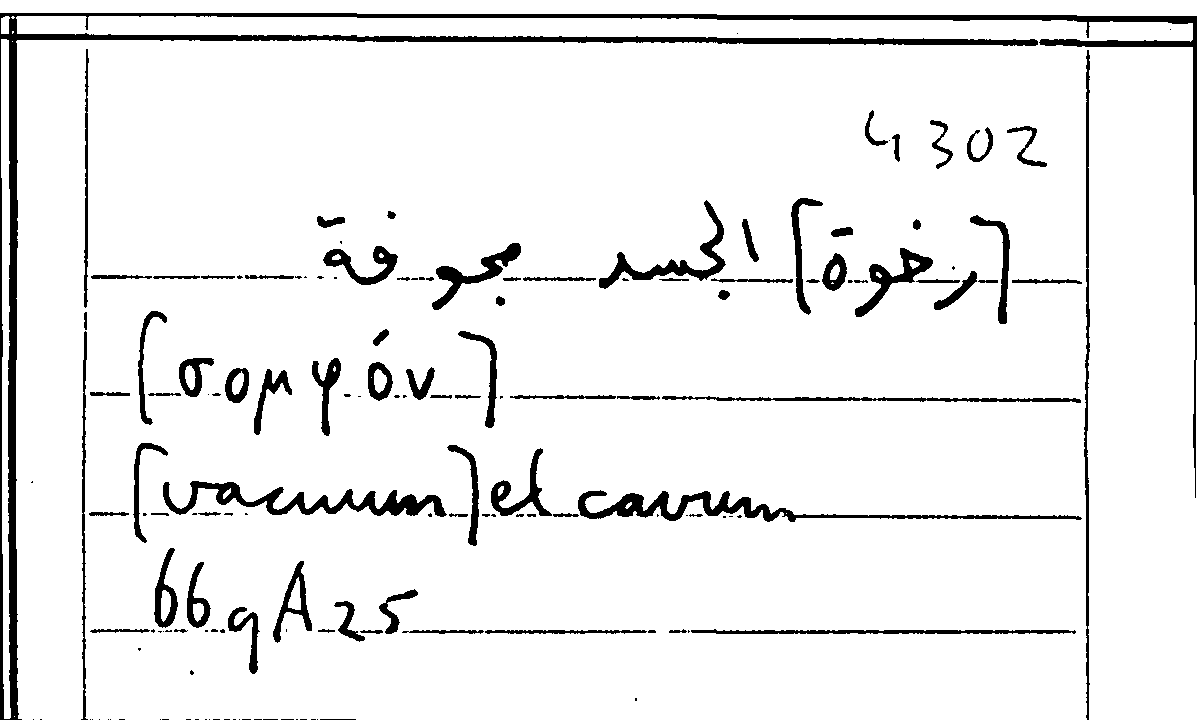 4302
[رخوة] الجسد مجوفة
[σομφόν]
[vacuum] et cavum
669A25